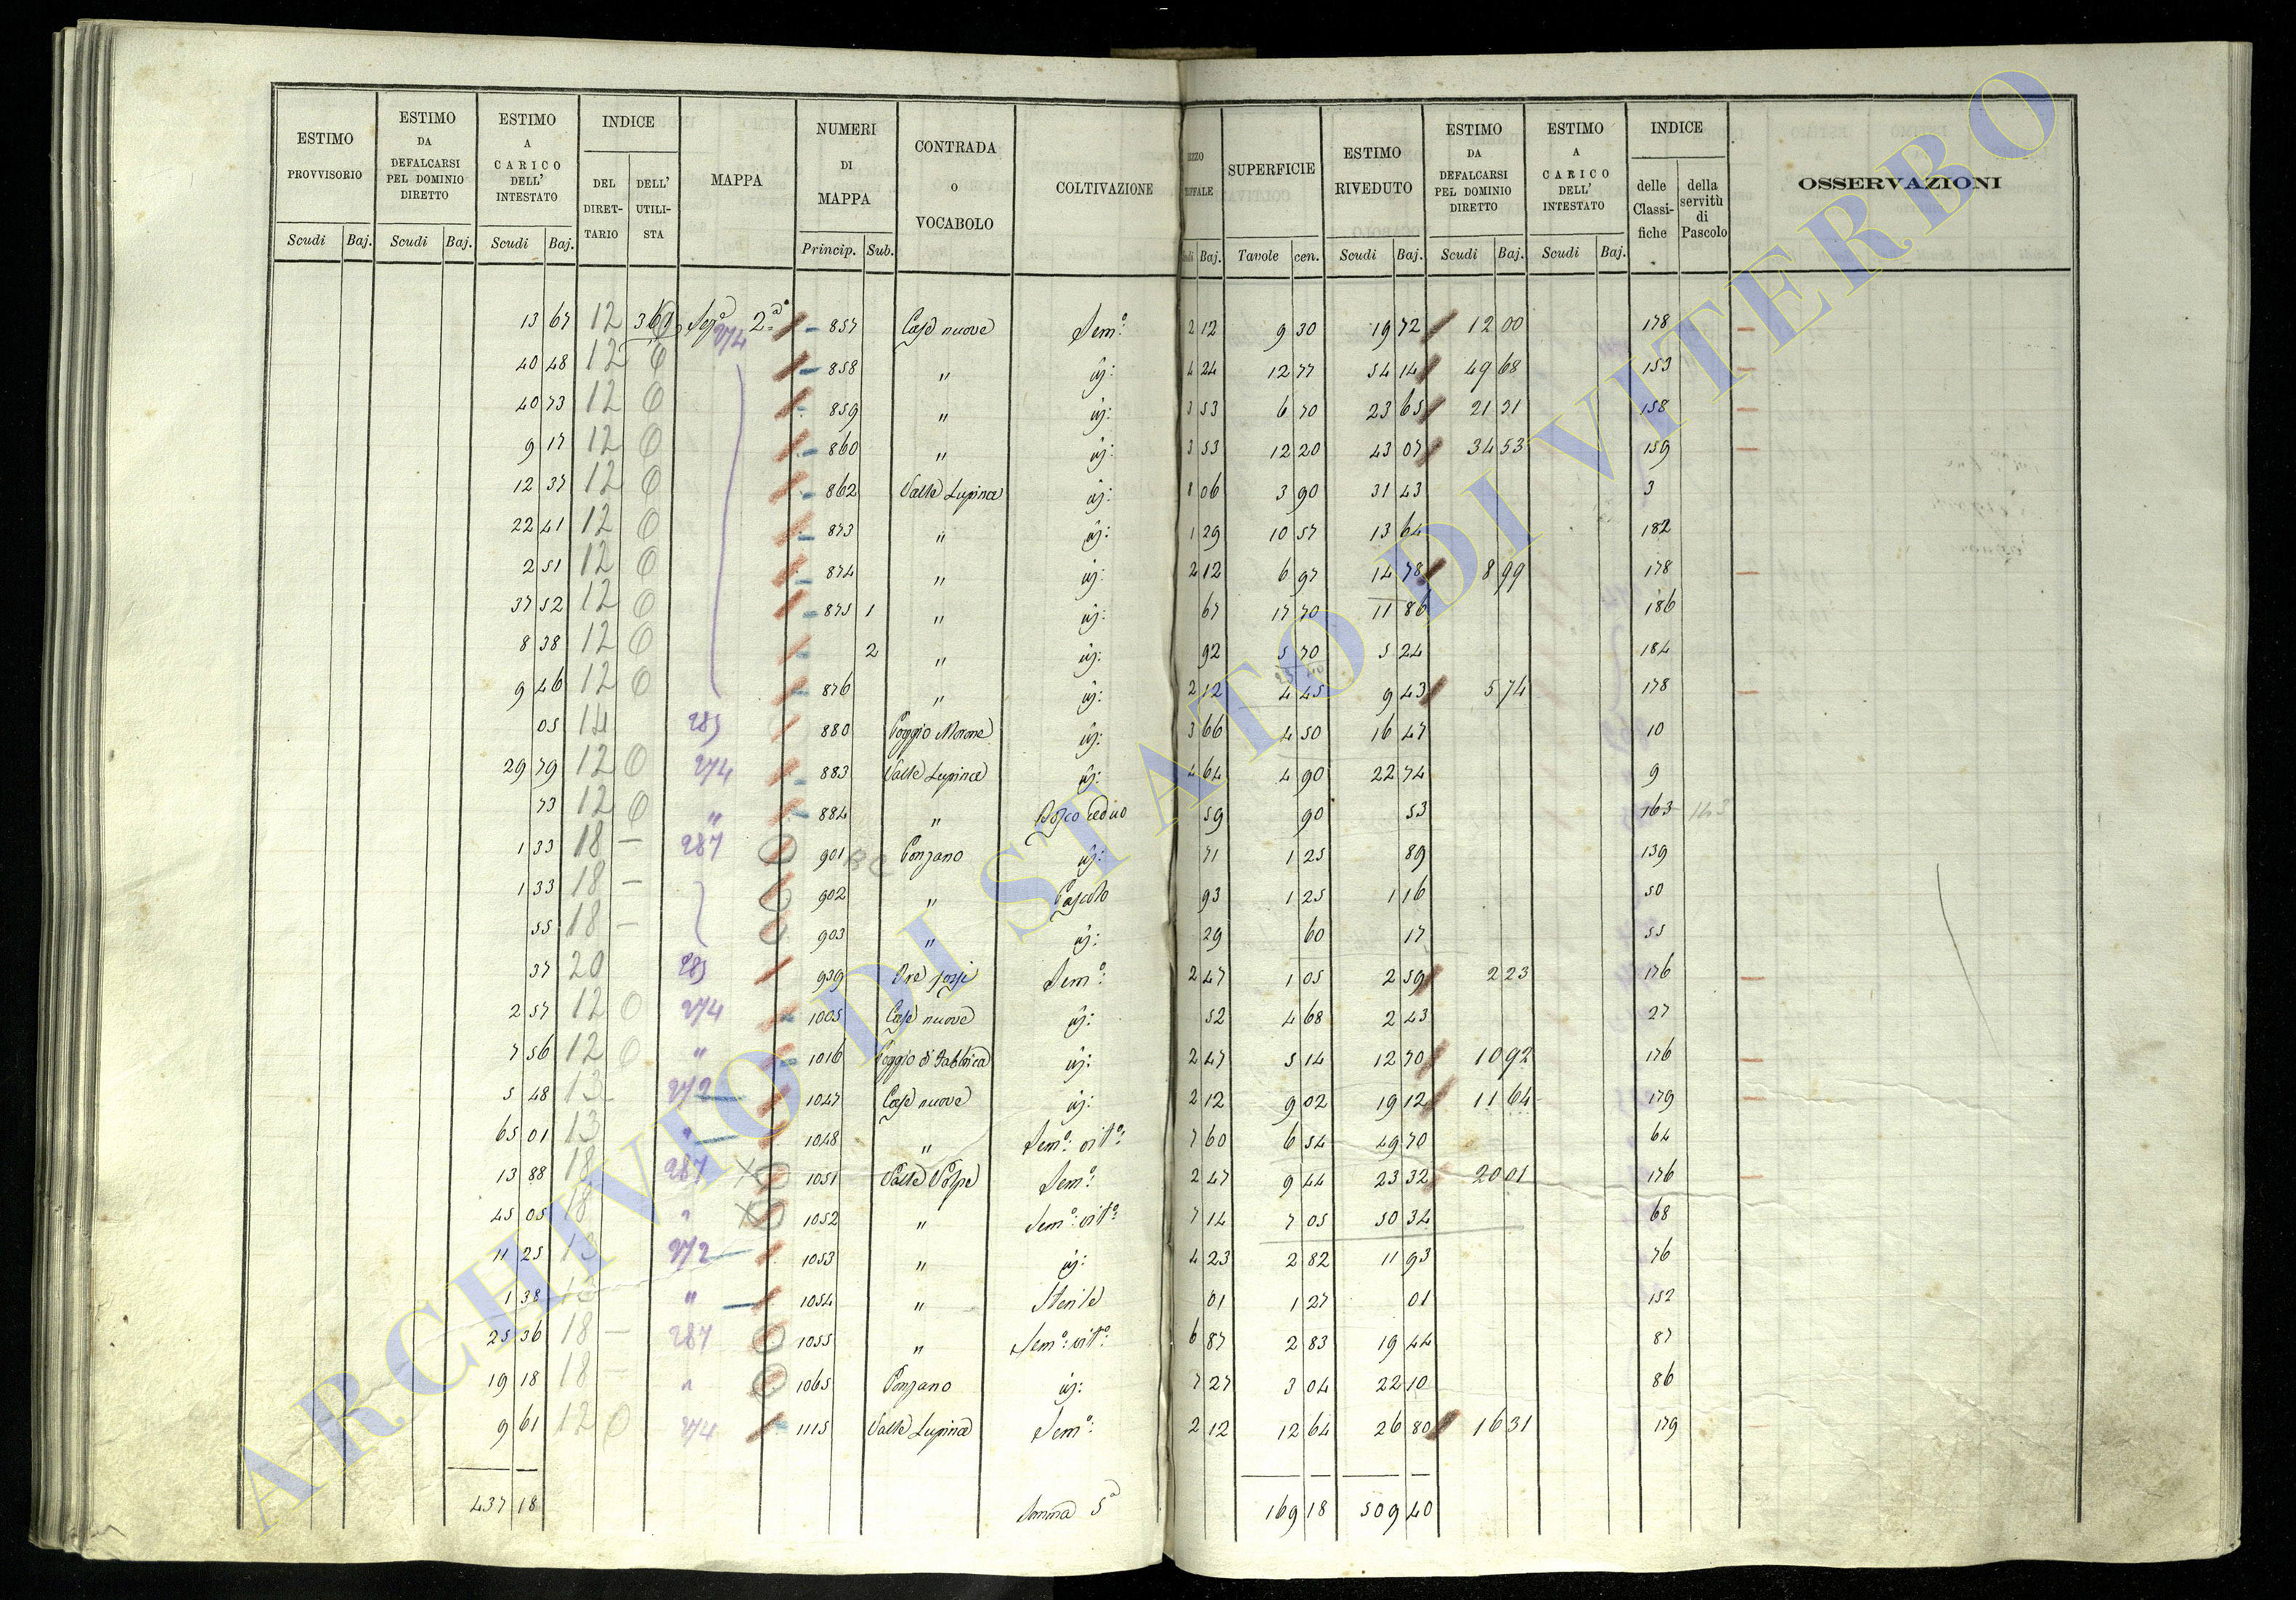 ESTIMO PROVVISORIO | ESTIMO DA DEFALCARSI PEL DOMINIO DIRETTO | ESTIMO A CARICO DELL' INTESTATO | INDICE | MAPPA | NUMERI DI MAPPA | CONTRADA O VOCABOLO | COLTIVAZIONE | SUPERFICIE | ESTIMO RIVEDUTO | ESTIMO DA DEFALCARSI PEL DOMINIO DIRETTO | ESTIMO A CARICO DELL' INTESTATO | INDICE | OSSERVAZIONI
DEL DIRETTARIO | DELL' UTILISTA | delle Classifiche | della servitù di Pascolo
Scudi | Baj. | Scudi | Baj. | Scudi | Baj. | Princip. | Sub. | Baj. | Tavole | cen. | Scudi | Baj. | Scudi | Baj. | Scudi | Baj.
13 67 12 369 2ª 274 857 Case nuove Sem.º 2 12 9 30 19 72 12 00 178
40 48 12 0 858 " iȷ: 4 24 12 77 54 14 49 68 153
40 73 12 0 859 " iȷ: 3 53 6 70 23 65 21 31 158
9 17 12 0 860 " iȷ: 3 53 12 20 43 07 34 53 159
12 37 12 0 862 Valle Lupina iȷ: 8 06 3 90 31 43 3
22 41 12 0 873 " iȷ: 1 29 10 57 13 64 182
2 51 12 0 874 " iȷ: 2 12 6 97 14 78 8 99 178
37 52 12 0 875 1 " iȷ: 67 17 70 11 86 186
8 38 12 0 2 " iȷ: 92 5 70 5 24 184
9 46 12 0 876 " iȷ: 2 12 4 45 9 43 5 74 178
05 14 285 880 Poggio Morone iȷ: 3 66 4 50 16 47 10
29 79 12 0 274 883 Valle Lupina iȷ: 4 64 4 90 22 74 9
73 12 0 " 884 " Bosco ceduo 59 90 53 163 163
1 33 18 — 287 901 Ponzano iȷ: 71 1 25 89 139
1 33 18 — 902 " Pascolo 93 1 25 1 16 50
55 18 — 903 " iȷ: 29 60 17 55
37 20 285 939 Tre fossi Sem.º 2 47 1 05 2 59 2 23 176
2 57 12 0 274 1005 Case nuove iȷ: 52 4 68 2 43 27
7 56 12 0 " 1016 Poggio di Fabbrica iȷ: 2 47 5 14 12 70 10 92 176
5 48 13 272 1047 Case nuove iȷ: 2 12 9 02 19 12 11 64 179
65 01 13 " 1048 " Sem.º vit.º 7 60 6 54 49 70 64
13 88 18 287 1051 Valle Volpe Sem.º 2 47 9 44 23 32 20 01 176
45 05 18 " 1052 " Sem.º vit.º 7 14 7 05 50 34 68
11 25 13 272 1053 " iȷ: 4 23 2 82 11 93 76
1 38 13 " 1054 " Sterile 01 1 27 01 152
25 36 18 — 287 1055 " Sem.º vit.º 6 87 2 83 19 44 87
19 18 18 — " 1065 Ponzano iȷ: 7 27 3 04 22 10 86
9 61 12 0 274 1115 Valle Lupina Sem.º 2 12 12 64 26 80 16 31 179
437 18 Somma 5ª 169 18 509 40
ARCHIVIO DI STATO DI VITERBO